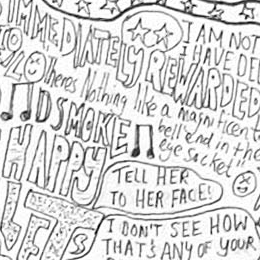 IMMEDIATELY REWARDED
I AM NOT
I HAVE DE
theres Nothing like a magnificent
bell end in the
eye socket"
D SMOKE
HAPPY
TELL HER
TO HER FACE!
LETS
I DON'T SEE HOW
THAT'S ANY OF YOUR